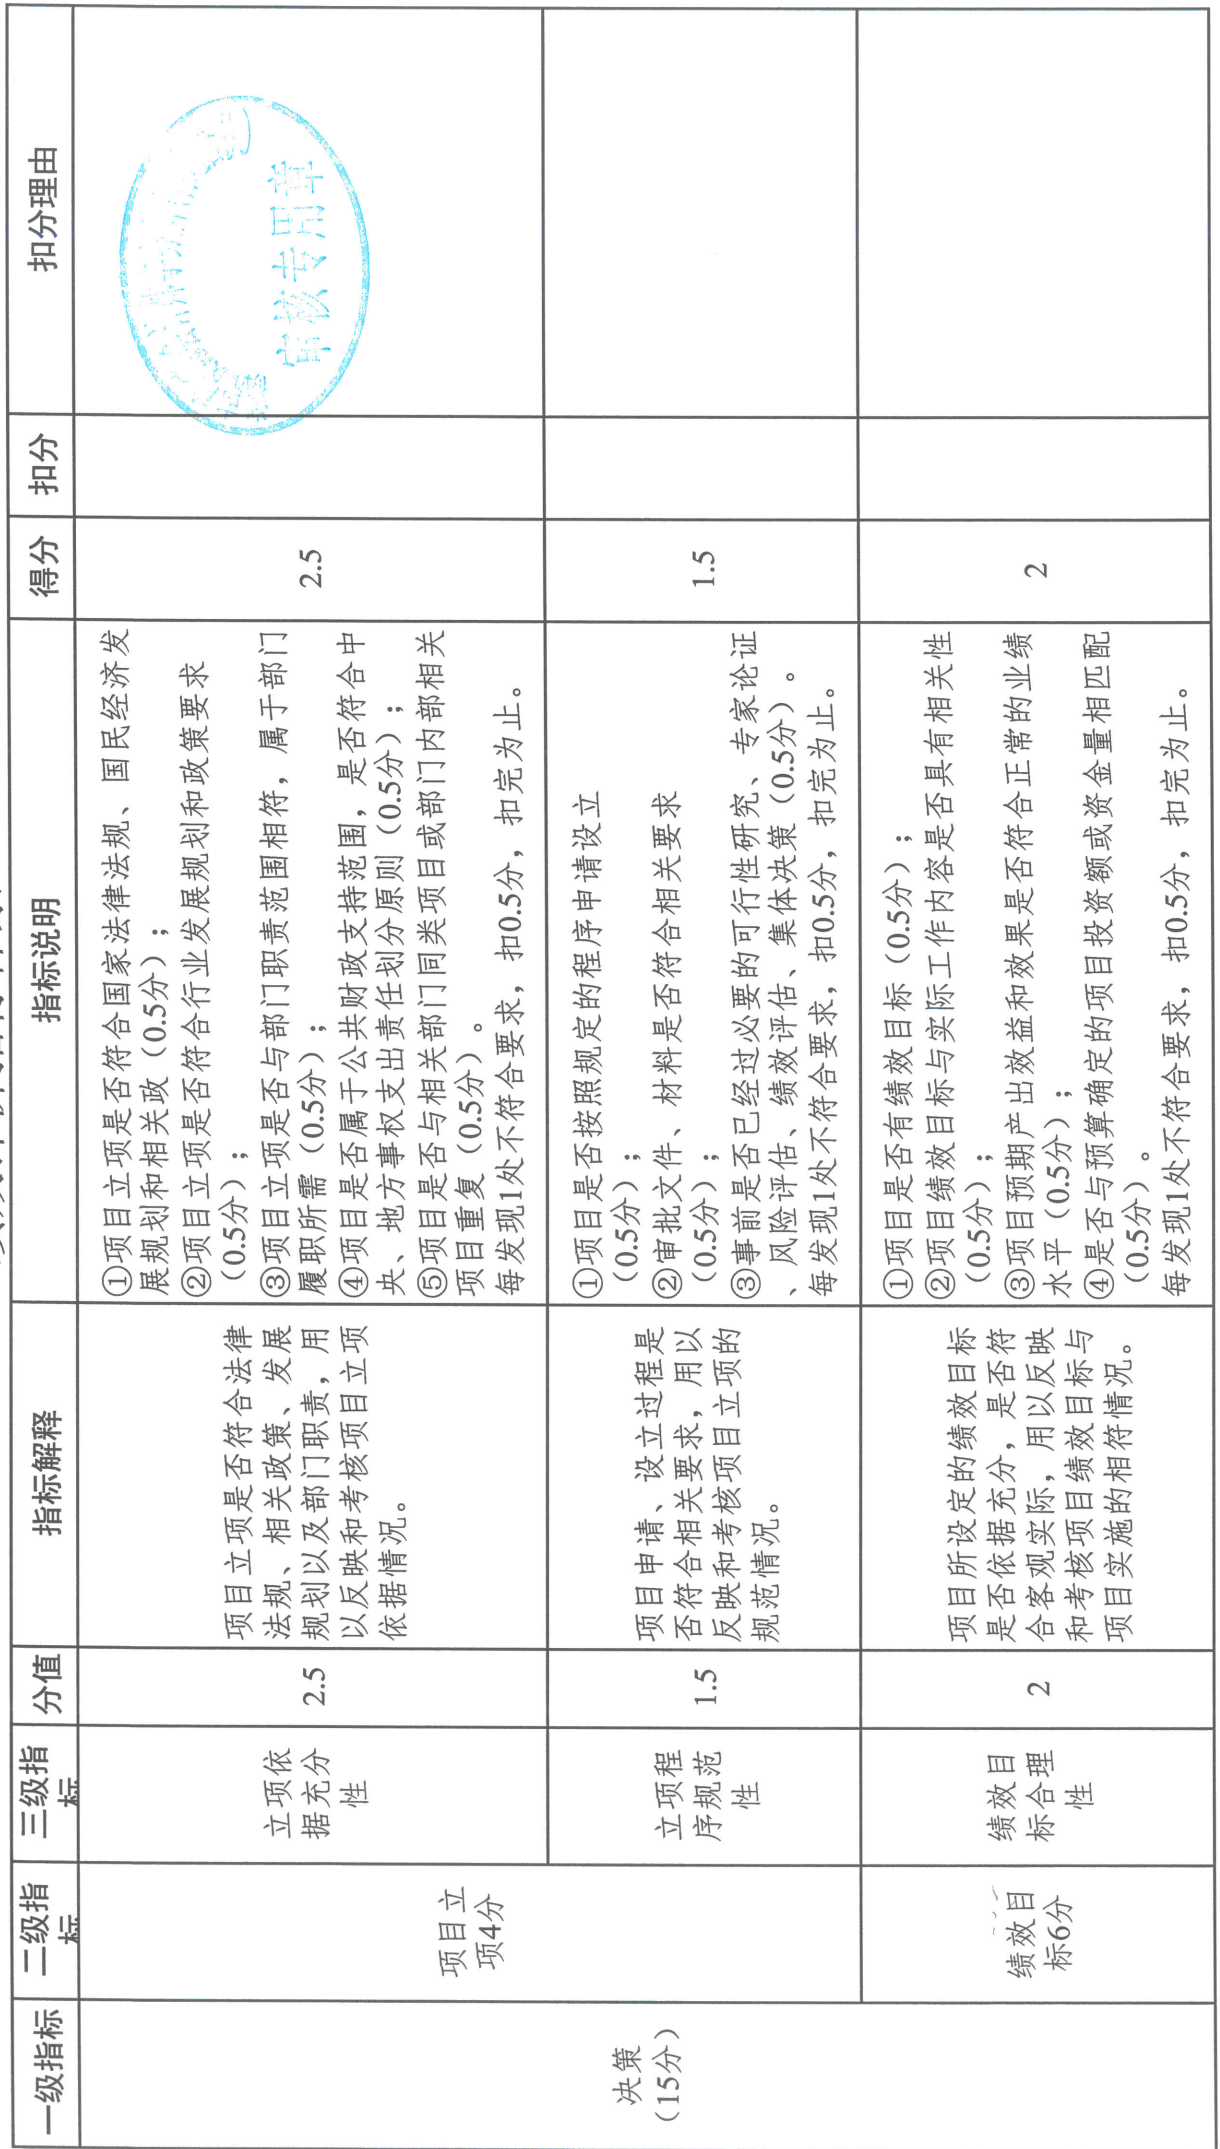 一级指标
二级指标
三级指标
分值
指标解释
指标说明
得分
扣分
扣分理由
决策
（15分）
项目立
项4分
立项依
据充分
性
2.5
项目立项是否符合法律
法规、相关政策、发展
规划以及部门职责，用
以反映和考核项目立项
依据情况。
①项目立项是否符合国家法律法规、国民经济发
展规划和相关政（0.5分）；
②项目立项是否符合行业发展规划和政策要求
（0.5分）；
③项目立项是否与部门职责范围相符，属于部门
履职所需（0.5分）；
④项目是否属于公共财政支持范围，是否符合中
央、地方事权支出责任划分原则（0.5分）；
⑤项目是否与相关部门同类项目或部门内部相关
项目重复（0.5分）。
每发现1处不符合要求，扣0.5分，扣完为止。
2.5
审核专用章
立项程
序规范
性
1.5
项目申请、设立过程是
否符合相关要求，用以
反映和考核项目立项的
规范情况。
①项目是否按照规定的程序申请设立
（0.5分）；
②审批文件、材料是否符合相关要求
（0.5分）；
③事前是否已经过必要的可行性研究、专家论证
、风险评估、绩效评估、集体决策（0.5分）。
每发现1处不符合要求，扣0.5分，扣完为止。
1.5
绩效目
标6分
绩效目
标合理
性
2
项目所设定的绩效目标
是否依据充分，是否符
合客观实际，用以反映
和考核项目绩效目标与
项目实施的相符情况。
①项目是否有绩效目标（0.5分）；
②项目绩效目标与实际工作内容是否具有相关性
（0.5分）；
③项目预期产出效益和效果是否符合正常的业绩
水平（0.5分）；
④是否与预算确定的项目投资额或资金量相匹配
（0.5分）。
每发现1处不符合要求，扣0.5分，扣完为止。
2